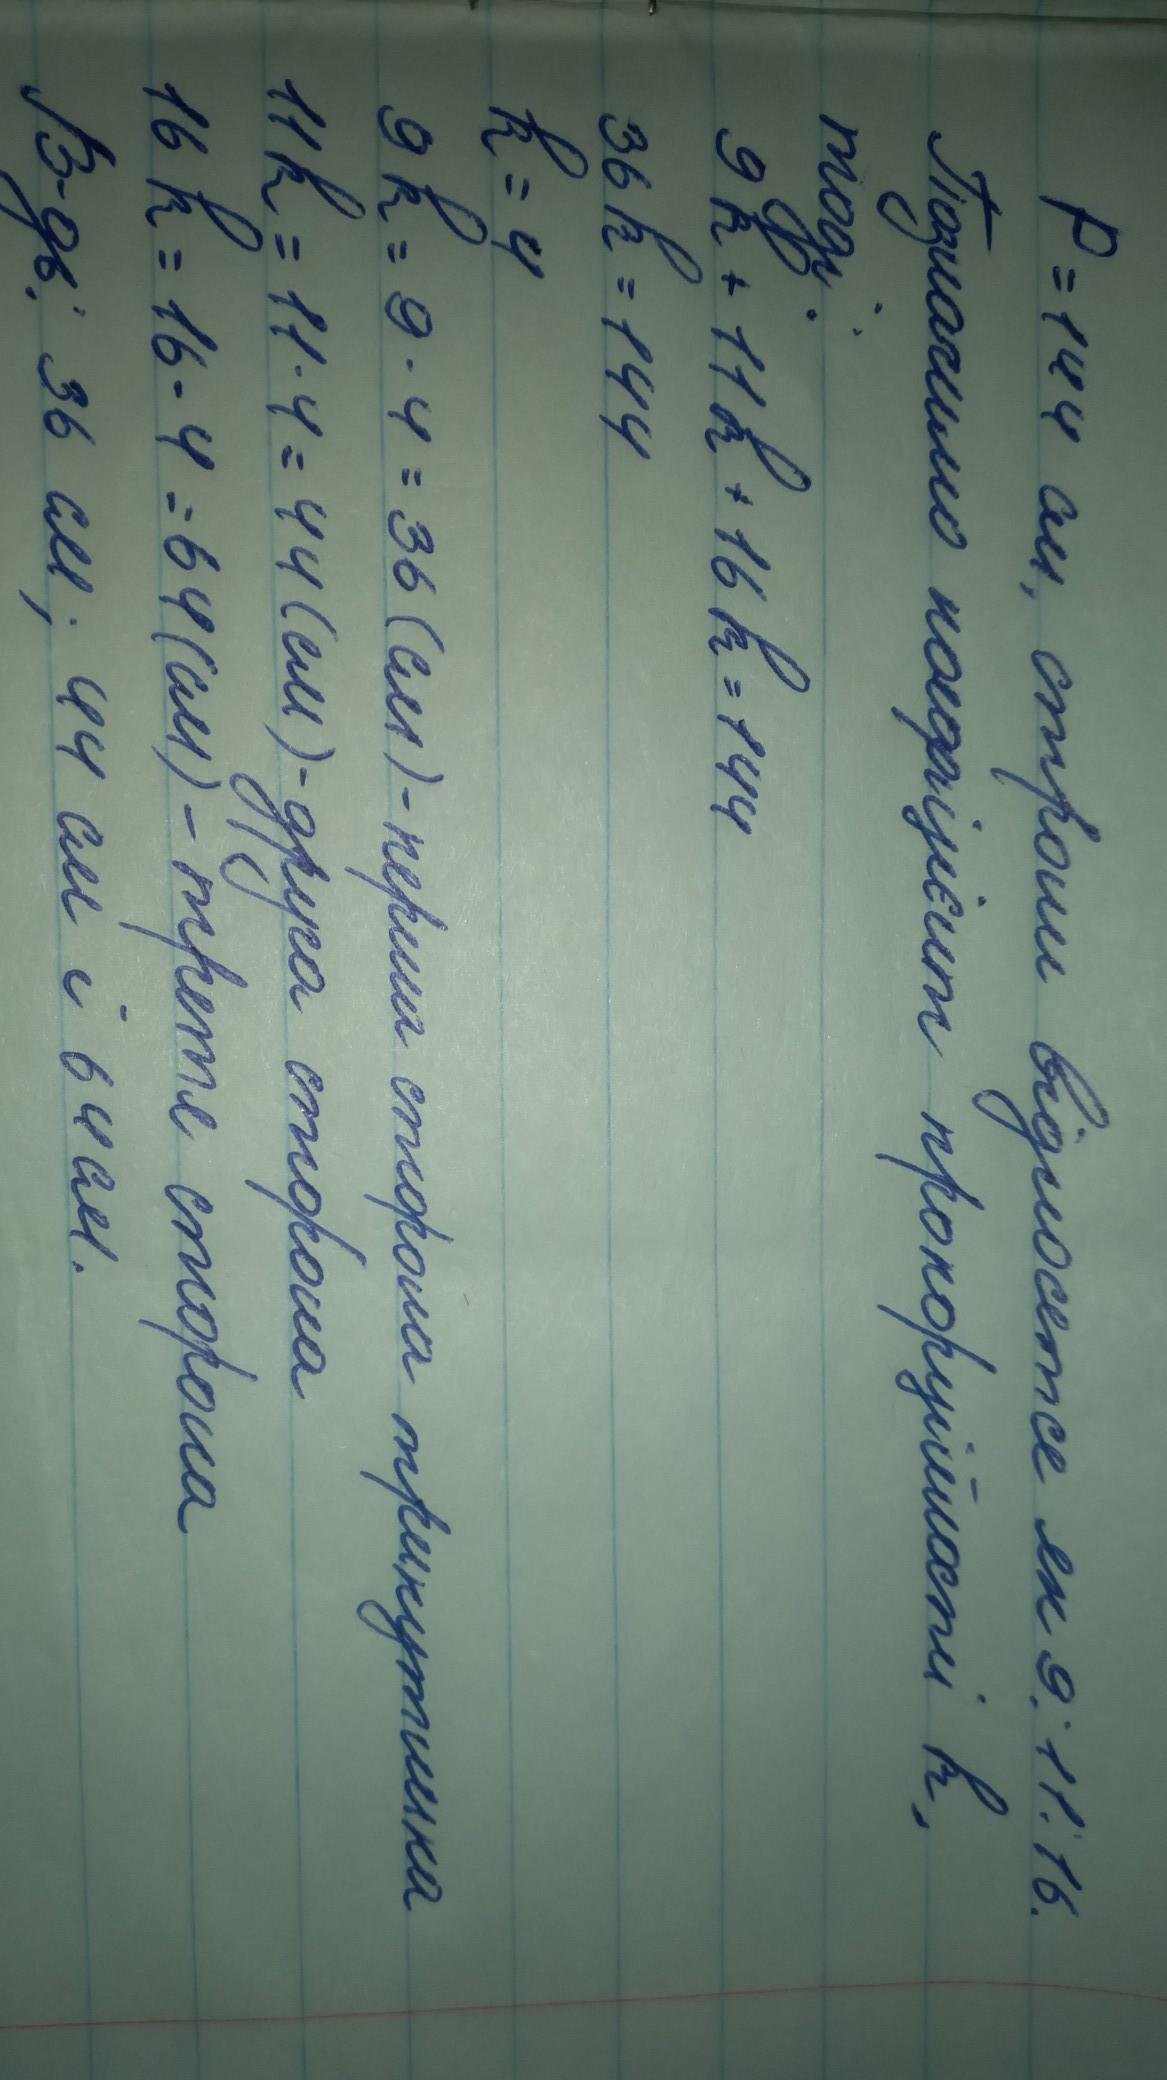 P=144 см, сторони відносяться як 9:11:16.
Позначимо коефіцієнт пропорційності k,
тоді:
9k+11k+16k=144
36k=144
k=4
9k=9·4=36(см)-перша сторона трикутника
11k=11·4=44(см)-друга сторона
16k=16·4=64(см)-третя сторона
В-дь: 36 см; 44 см і 64см.